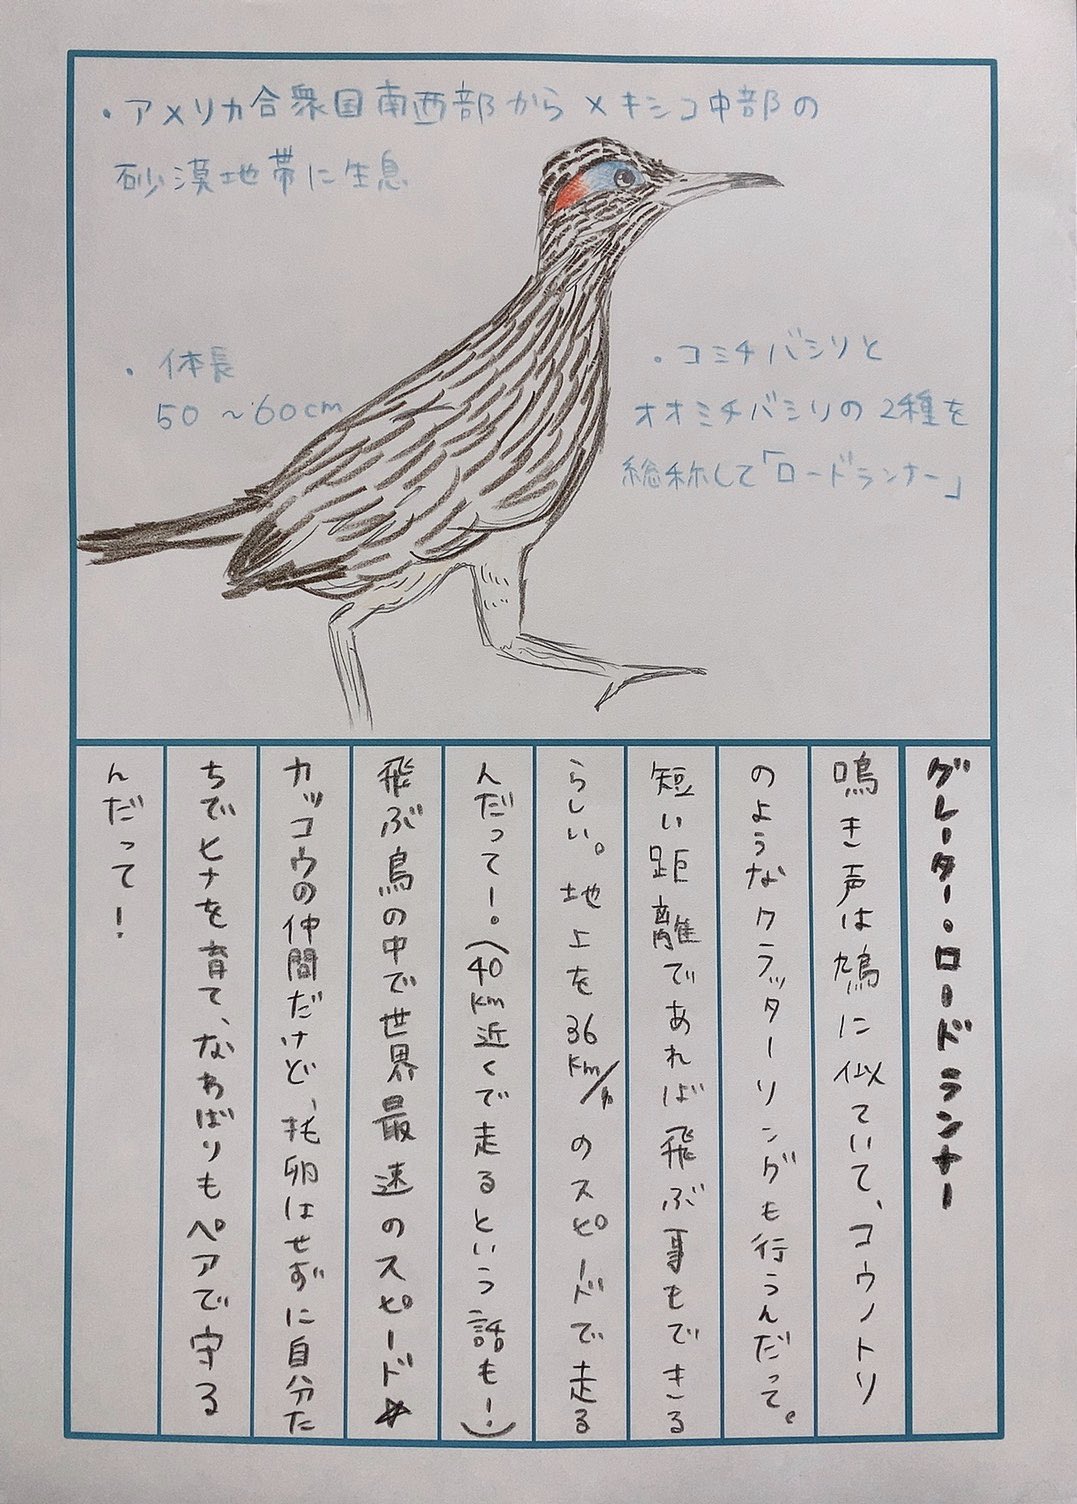 ・アメリカ合衆国南西部からメキシコ中部の
砂漠地帯に生息
・体長
50～60cm
・コミチバシリと
オオミチバシリの2種を
総称して「ロードランナー」
グレーター・ロードランナー
鳴き声は鳩に似ていて、コウノトリ
のようなクラッターリングも行うんだって。
短い距離であれば飛ぶ事もできる
らしい。地上を36km/hのスピードで走る
んだってー。(40km近くで走るという話も！)
飛ぶ鳥の中で世界最速のスピード☆
カッコウの仲間だけど、托卵はせずに自分た
ちでヒナを育て、なわばりもペアで守る
んだって！